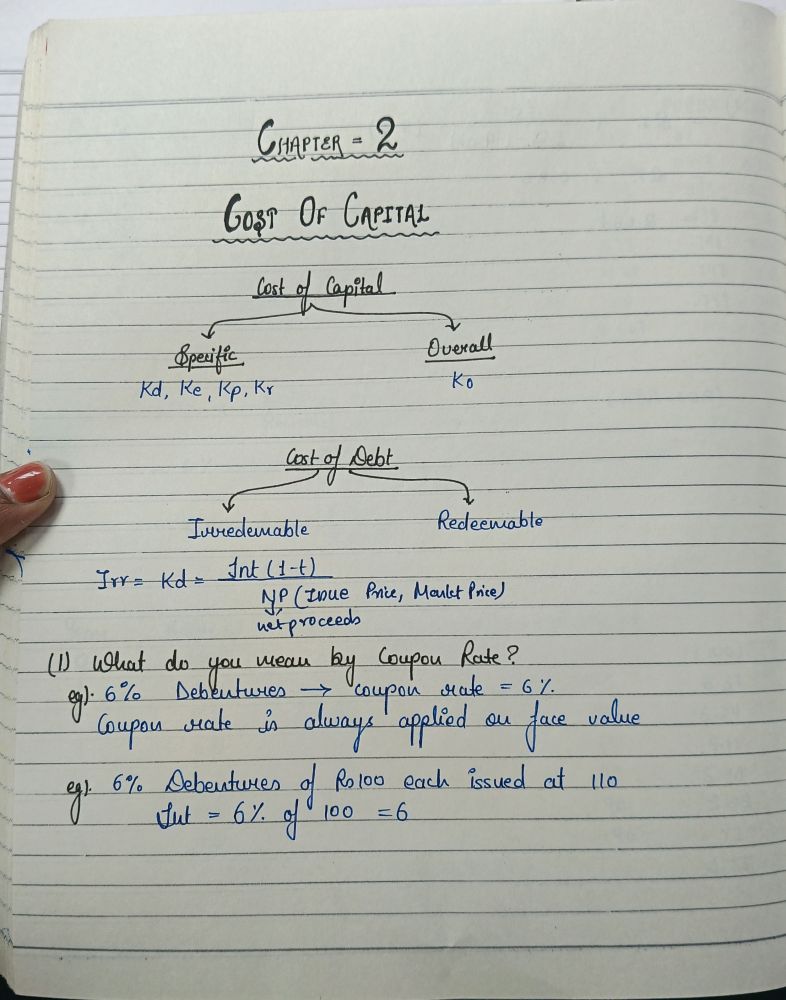 CHAPTER = 2
COST OF CAPITAL
Cost of Capital
Specific Overall
Kd, Ke, Kp, Kr Ko
Cost of Debt
Irredeemable Redeemable
Irr = Kd = Int (1-t)
NP (Issue Price, Market Price)
net proceeds
(1) What do you mean by Coupon Rate?
eg). 6% Debentures → coupon rate = 6%
Coupon rate is always applied on face value
eg). 6% Debentures of Rs100 each issued at 110
Int = 6% of 100 = 6